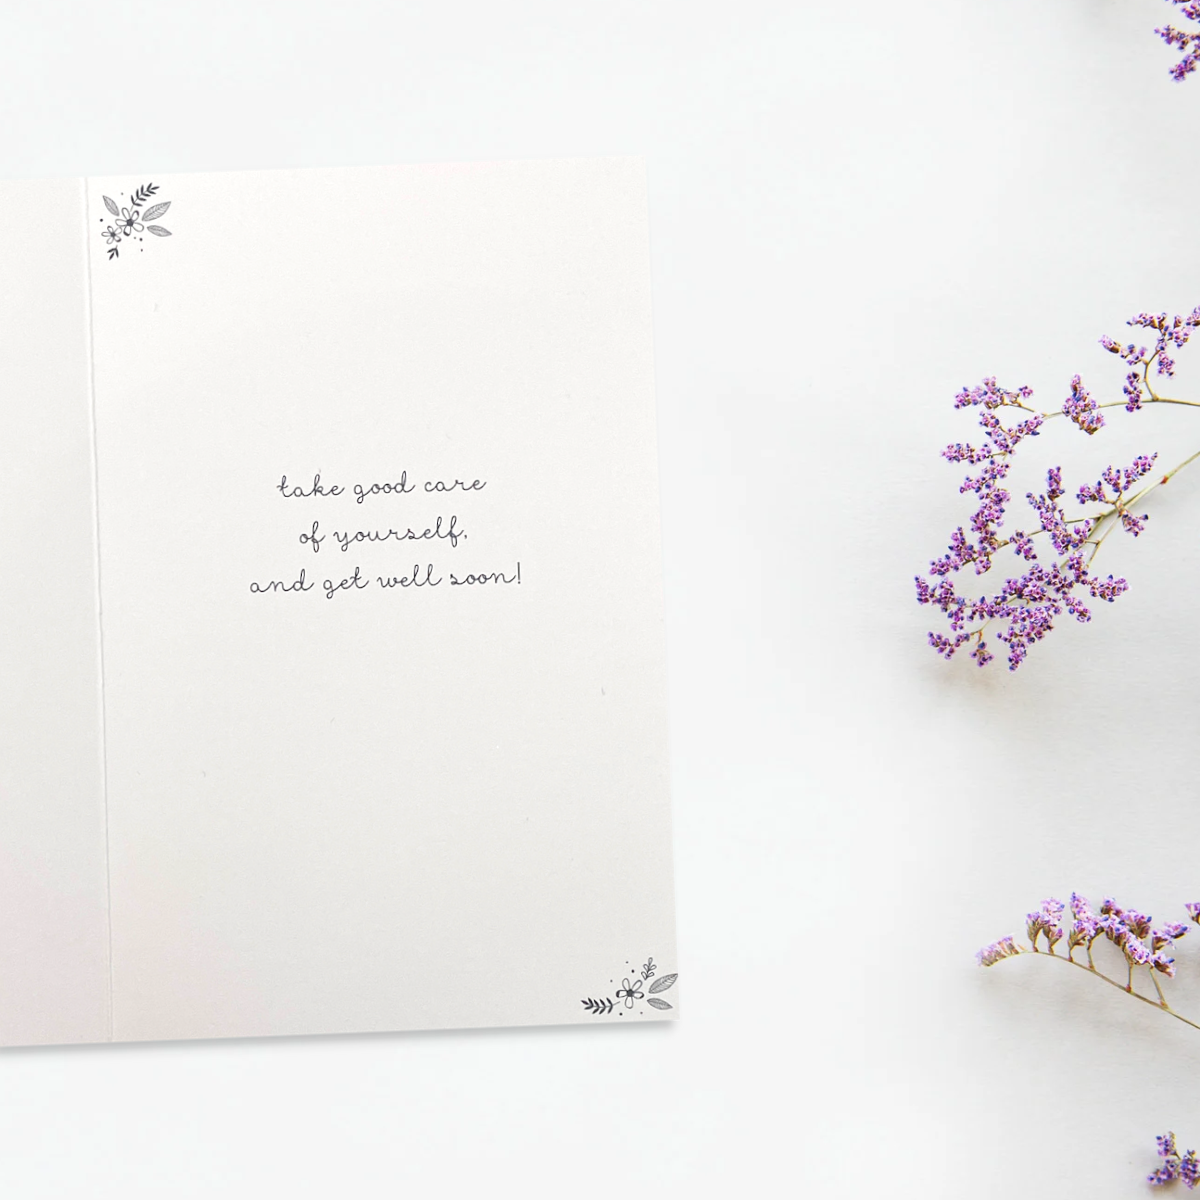 take good care
of yourself,
and get well soon!